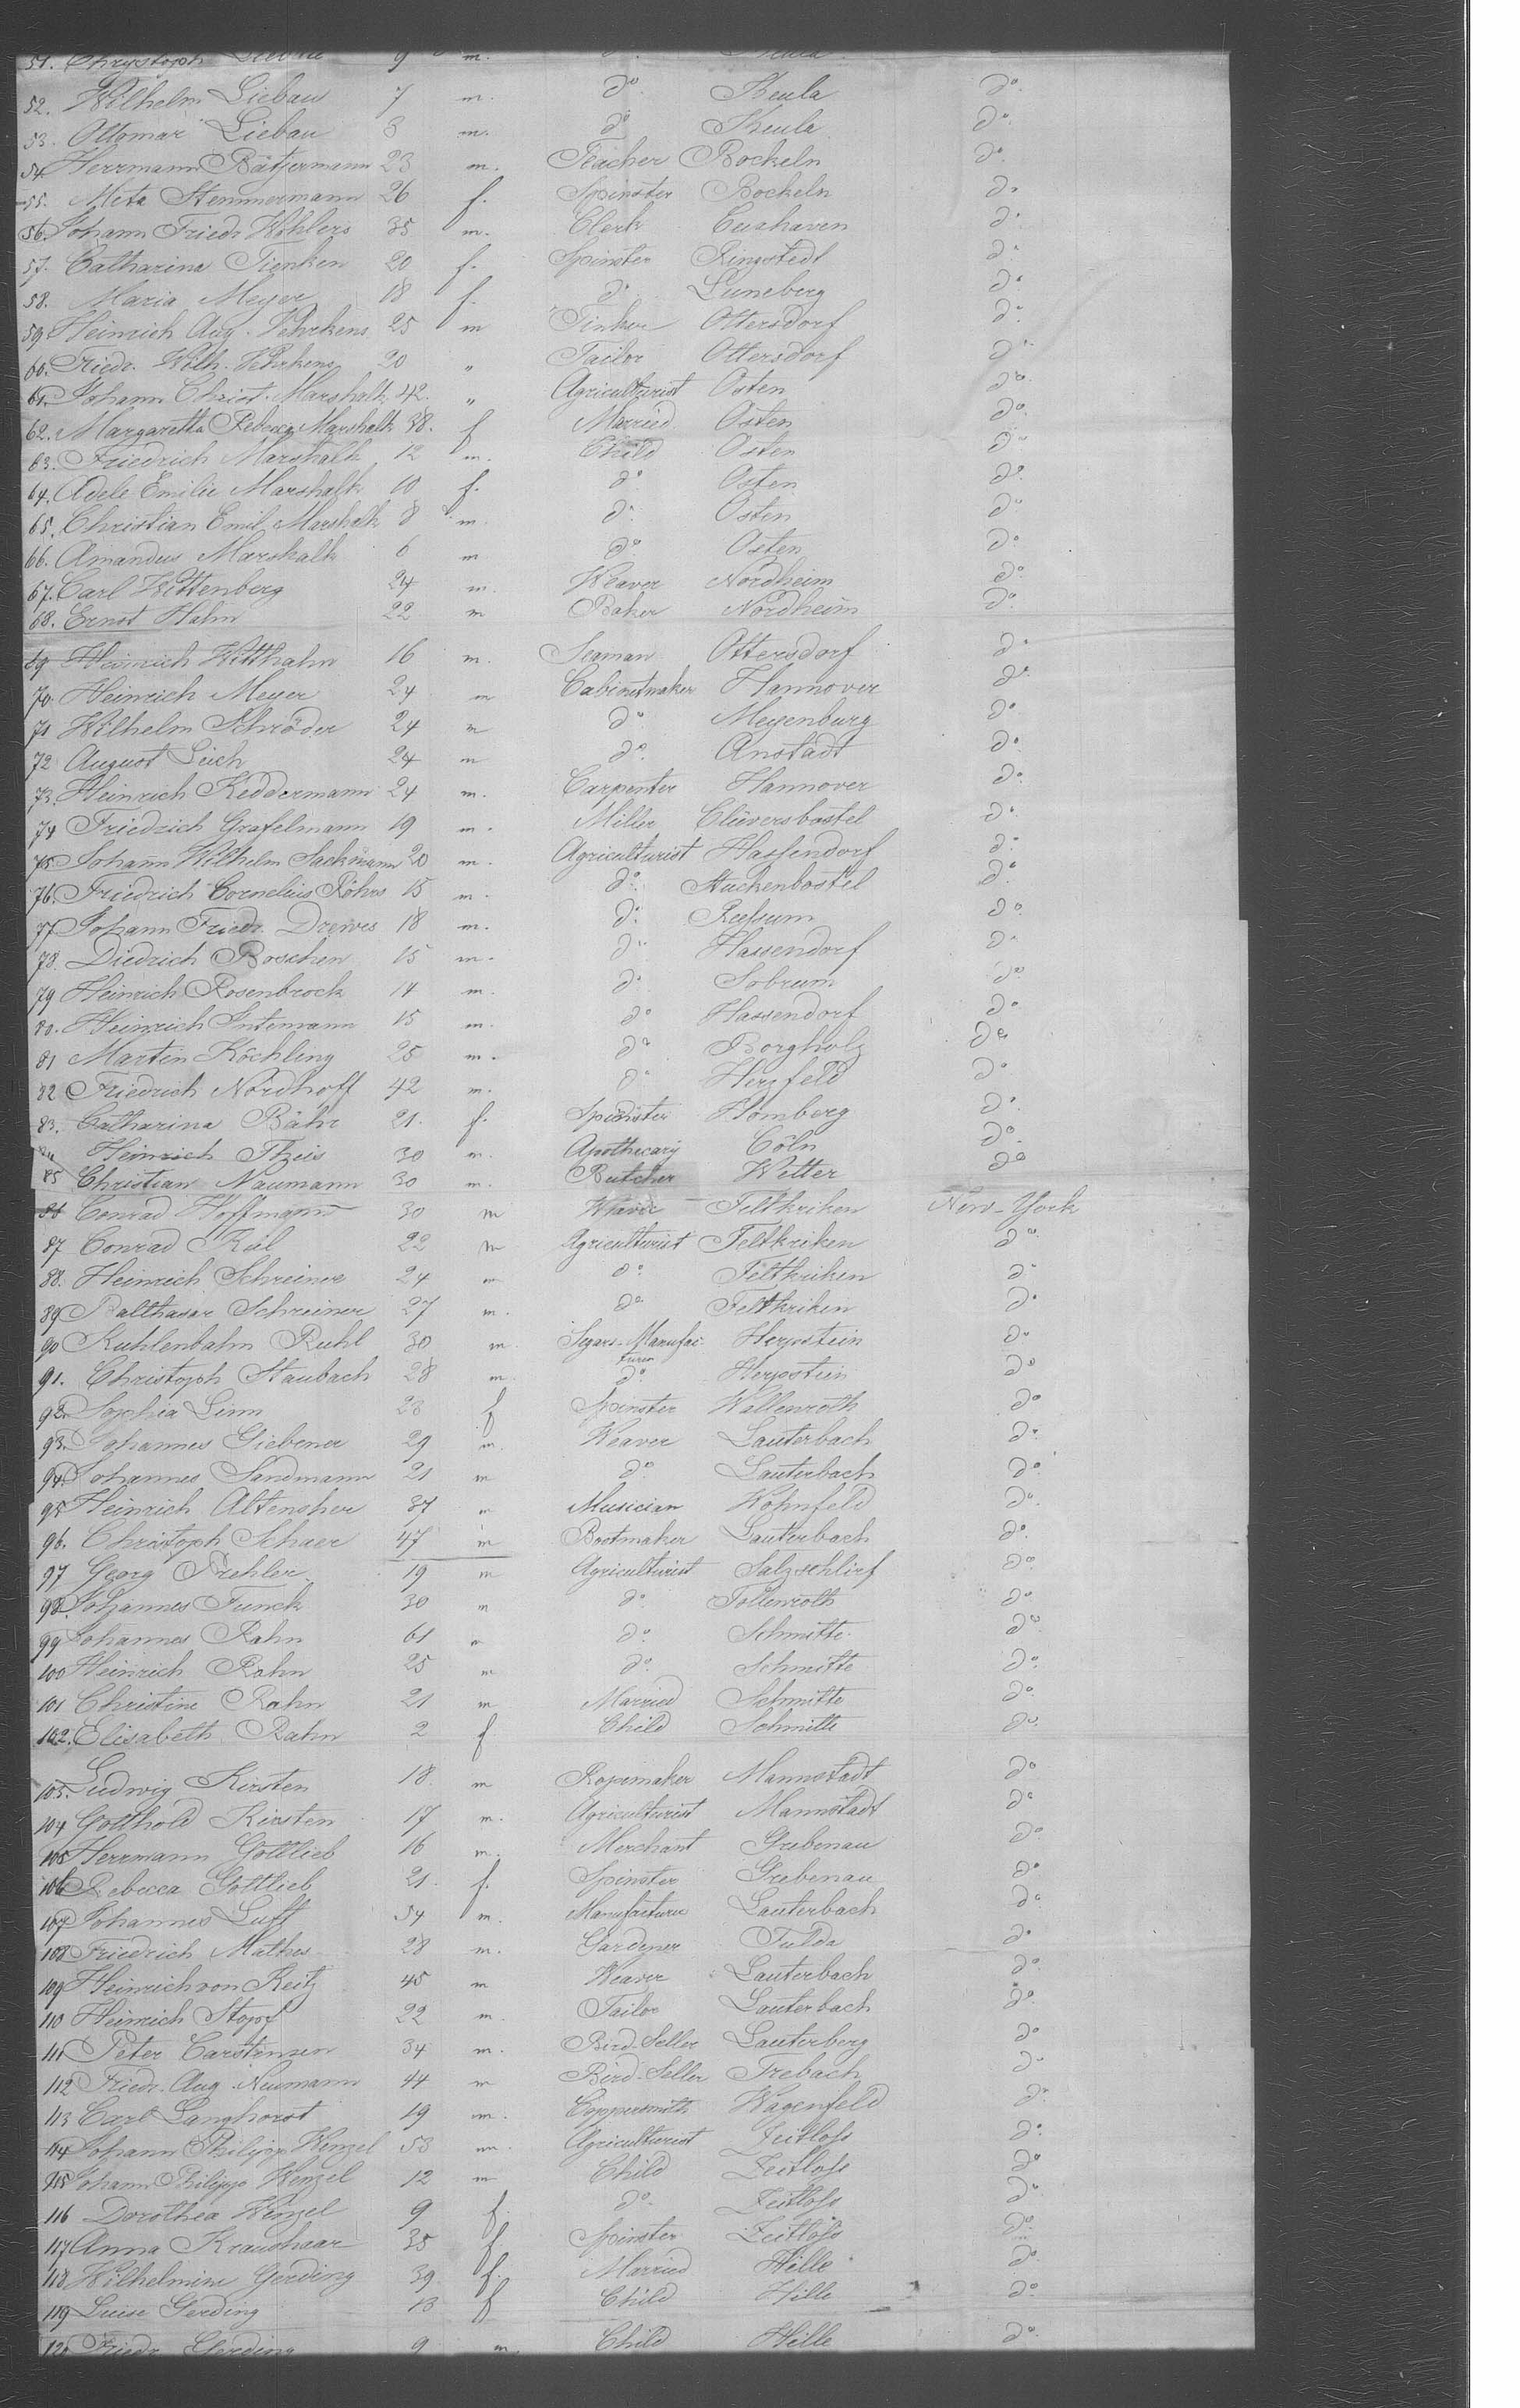 51. Chrystoph Liebau 9 m. do. Keula
52. Wilhelm Liebau 7 m. do. Keula do.
53. Ottomar Liebau 3 m. do Keula do.
54 Herrmann Bätjermann 23 m. Teacher Bockeln do.
55. Meta Stemmermann 26 f. Spinster Bockeln do.
56. Johann Friedr Wohlers 35 m. Clerk Cuxhaven do.
57. Catharina Tienken 20 f. Spinster Ringstedt do.
58. Maria Meyer 18 f. do. Luneberg do.
59 Heinrich Aug. Vehrkens 25 m Tinker Ottersdorf do.
60. Friedr. Wilh. Vehrkens 20 " Tailor Ottersdorf do.
61. Johann Christ. Marshalk 42. " Agriculturist Osten do.
62. Margaretha Rebecca Marshalk 38. f Married Osten do.
63. Friedrich Marshalk 12 m. Child Osten do.
64. Adele Emilie Marshalk 10 f. do. Osten do.
65. Christian Emil Marshalk 8 m. do. Osten do.
66. Amandus Marshalk 6 m do. Osten do.
67. Carl Wittenberg 24 m. Weaver Nordheim do.
68. Ernst Hahn 22 m Baker Nordheim do.
69 Heinrich Witthahn 16 m. Seaman Ottersdorf do
70. Heinrich Meyer 24 m Cabinetmaker Hannover do.
71 Wilhelm Schröder 24 m do. Meyenburg do.
72 August Leich 24 m do. Anstadt do.
73. Heinrich Keddermann 24 m. Carpenter Hannover do.
74 Friedrich Grafelmann 19 m. Miller Clüversbostel do.
75 Johann Wilhelm Sackmann 20 m. Agriculturist Hassendorf do.
76. Friedrich Cornelius Röhrs 15 m. do. Stuckenbostel do.
77 Johann Friedr. Drewes 18 m. do. Reessum do.
78. Diedrich Boschen 15 m. do Hassendorf do.
79 Heinrich Rosenbrock 14 m. do. Sobrum do
80. Heinrich Intemann 15 m. do Hassendorf do
81 Martin Köchling 25 m. do Borgholz do
82 Friedrich Nordhoff 42 m. do Herzfeld do
83. Catharina Bähr 21. f. Spinster Homberg do.
84 Heinrich Theis 30 m. Apothecary Cöln do.
85 Christian Naumann 30 m. Butcher Wetter do
86 Conrad Hoffmann 30 m Weaver Feltkriken New-York
87 Conrad Keil 22 m Agriculturist Feltkriken do.
88. Heinrich Schreiner 24 m do. Feltkriken do
89 Balthasar Schreiner 27 m. do. Feltkriken do.
90 Kuhlenbahn Ruhl 30 m. Segars-Manufac- Herpstein do
turer
91. Christoph Staubach 28 m. do. Herpstein do
92. Sophia Linn 23 f Spinster Wallenroth do
93. Johannes Giebener 29 m. Weaver Lauterbach do.
94. Johannes Sandmann 21 m do. Lauterbach do.
95 Heinrich Altensher 37 m Musician Hohnfeld do.
96. Christoph Schaer 47 m Bootmaker Lauterbach do.
97 Georg Prehler 19 m Agriculturist Salzschlirf do.
98. Johannes Funck 30 m do. Follenroth do
99 Johannes Rahn 61 m do. Schmitte do.
100 Heinrich Rahn 25 m do. Schmitte do.
101 Christine Rahn 21 m Married Schmitte do.
102. Elisabeth Rahn 2 f Child Schmitte do.
103. Ludwig Kirsten 18. m Ropemaker Mannstadt do
104 Gotthold Kirsten 17 m. Agriculturist Mannstadt do
105 Herrmann Gottlieb 16 m. Merchant Grebenau do
106 Rebecca Gottlieb 21. f. Spinster Grebenau do
107 Johannes Luft 54 m. Manufacturer Lauterbach do
108 Friedrich Mathes 28 m. Gardener Fulda do
109 Heinrich von Reitz 45 m Weaver Lauterbach do.
110 Heinrich Stopf 22 m. Tailor Lauterbach do.
111 Peter Carstensen 34 m. Bird-Seller Lauterberg do
112 Friedr. Aug. Neumann 44 m Bird-Seller Trebach do
113 Carl Langhorst 19 m. Coppersmith Wagenfeld do.
114 Johann Philipp Wenzel 53 m. Agriculturist Zeitloss do.
115 Johann Philipp Wenzel 12 m Child Zeitloss do
116 Dorothea Wenzel 9 f. do. Zeitloss do
117 Anna Kraushaar 35 f. Spinster Zeitloss do.
118 Wilhelmine Gerding 39. f. Married Hille do.
119 Luise Gerding 13 f Child Hille do.
120 Friedr Gerding 9 m. Child Hille do.